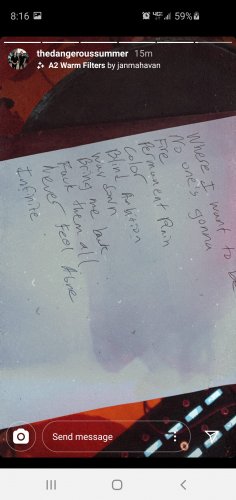 8:16
59%
thedangeroussummer 15m
A2 Warm Filters by janmahavan
Where I want to be
No one's gonna
Fire
Permanent Rain
Color
Blind Ambition
Way down
Bring me back
Fuck them all
Never feel alone
Infinite
Send message